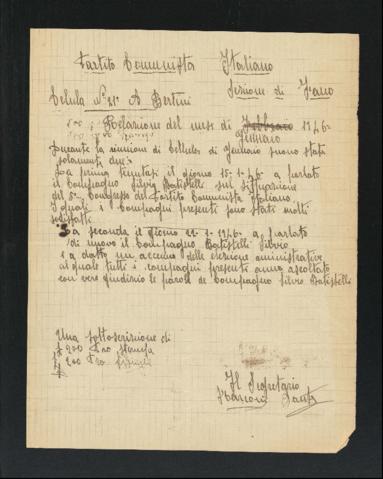 Partito Comunista Italiano
Sezione di Fano
Celula N° 21 A Bertini
Relazione del mese di Febbraio 1946
Gennaio
Durante la riunioni di cellula di Gennaio suono stati
solamenti due:
La prima tenutasi il giorno 15-1-46 a parlato
il Compagno Silvio Batistelli sul situazione
del 5° Congresso del Partito Comunista Italiano
I quali i Compagni presenti sono stati molti
sodisfatti
La seconda il giorno 22-1-1946 a parlato
di nuovo il Compagno Batistelli Silvio
e a datto un accenno delle elezione aministrative
ai quale tutti i compagni presenti anno ascoltato
con vero giudizio le parole de Compagno Silvio Batistelli
Una sottoscrizione di
£ 200 Pro stampa
£ 200 Pro
Il Segretario
Marconi